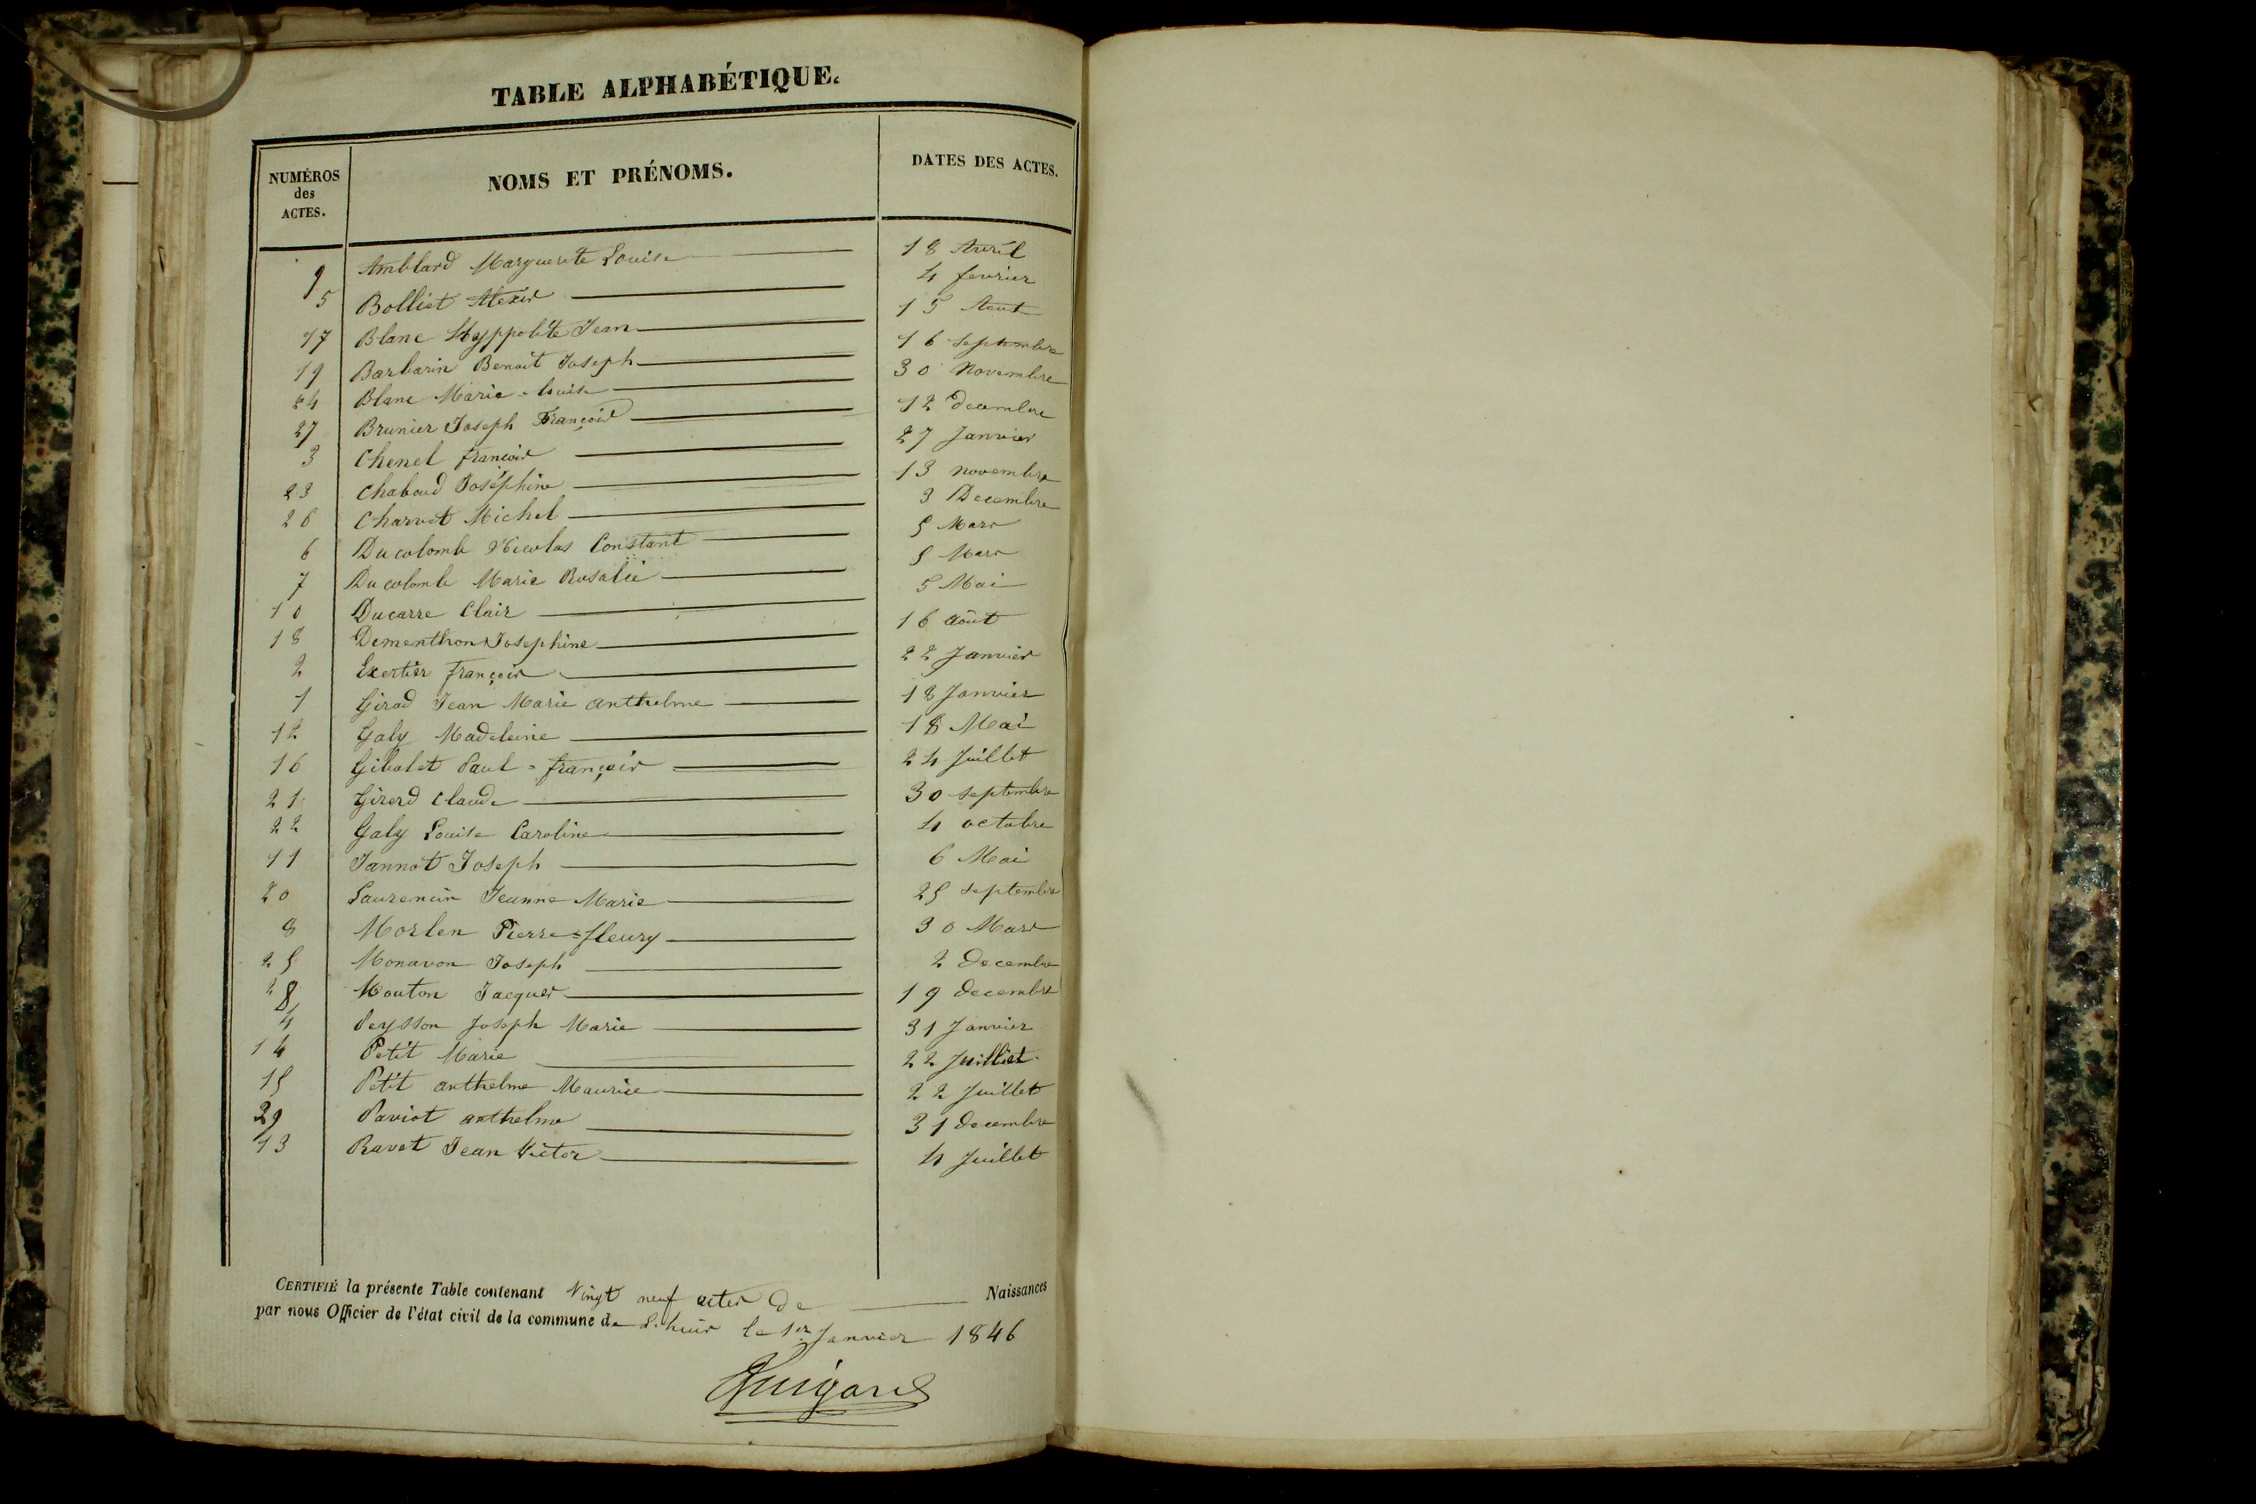 TABLE ALPHABÉTIQUE.
NUMÉROS des ACTES. NOMS ET PRÉNOMS. DATES DES ACTES.
9 Amblard Marguerite Louise 18 Avril
5 Bolliet Alexis 4 fevrier
17 Blanc Hyppolite Jean 15 Aout
19 Barbarin Benoit Joseph 16 septembre
24 Blanc Marie-louise 30 Novembre
27 Brunier Joseph François 12 decembre
3 Chenel françois 27 Janvier
23 Chaboud Joséphine 13 novembre
26 Charvet Michel 3 Decembre
6 Ducolomb Nicolas Constant 5 Mars
7 Ducolomb Marie Rosalie 5 Mars
10 Ducarre Clair 5 Mai
18 Dementhon Josephine 16 août
2 Exertier françois 22 Janvier
1 Girod Jean Marie anthelme 18 Janvier
12 Galy Madeleine 18 Mai
16 Gibolet Paul=françois 24 Juillet
21 Girerd Claude 30 septembre
22 Galy Louise Caroline 4 octobre
11 Jannot Joseph 6 Mai
20 Laurencin Jeanne Marie 25 septembre
8 Morlen Pierre=fleury 30 Mars
25 Monavon Joseph 2 decembre
28 Mouton Jacques 19 decembre
4 Peysson Joseph Marie 31 Janvier
14 Petit Marie 22 Juillet
15 Petit anthelme Maurice 22 Juillet
29 Paviot anthelme 31 decembre
13 Ravet Jean Victor 4 Juillet
CERTIFIÉ la présente Table contenant Vingt neuf actes de Naissances
par nous Officier de l'état civil de la commune de Lhuis le 1er Janvier 1846
Guigard